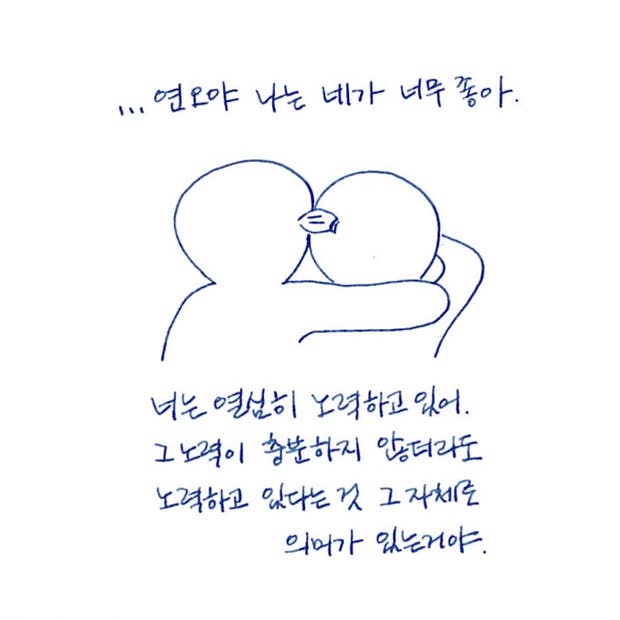 ...연오야 나는 네가 너무 좋아.
너는 열심히 노력하고 있어.
그 노력이 충분하지 않더라도
노력하고 있다는 것 그 자체로
의미가 있는거야.